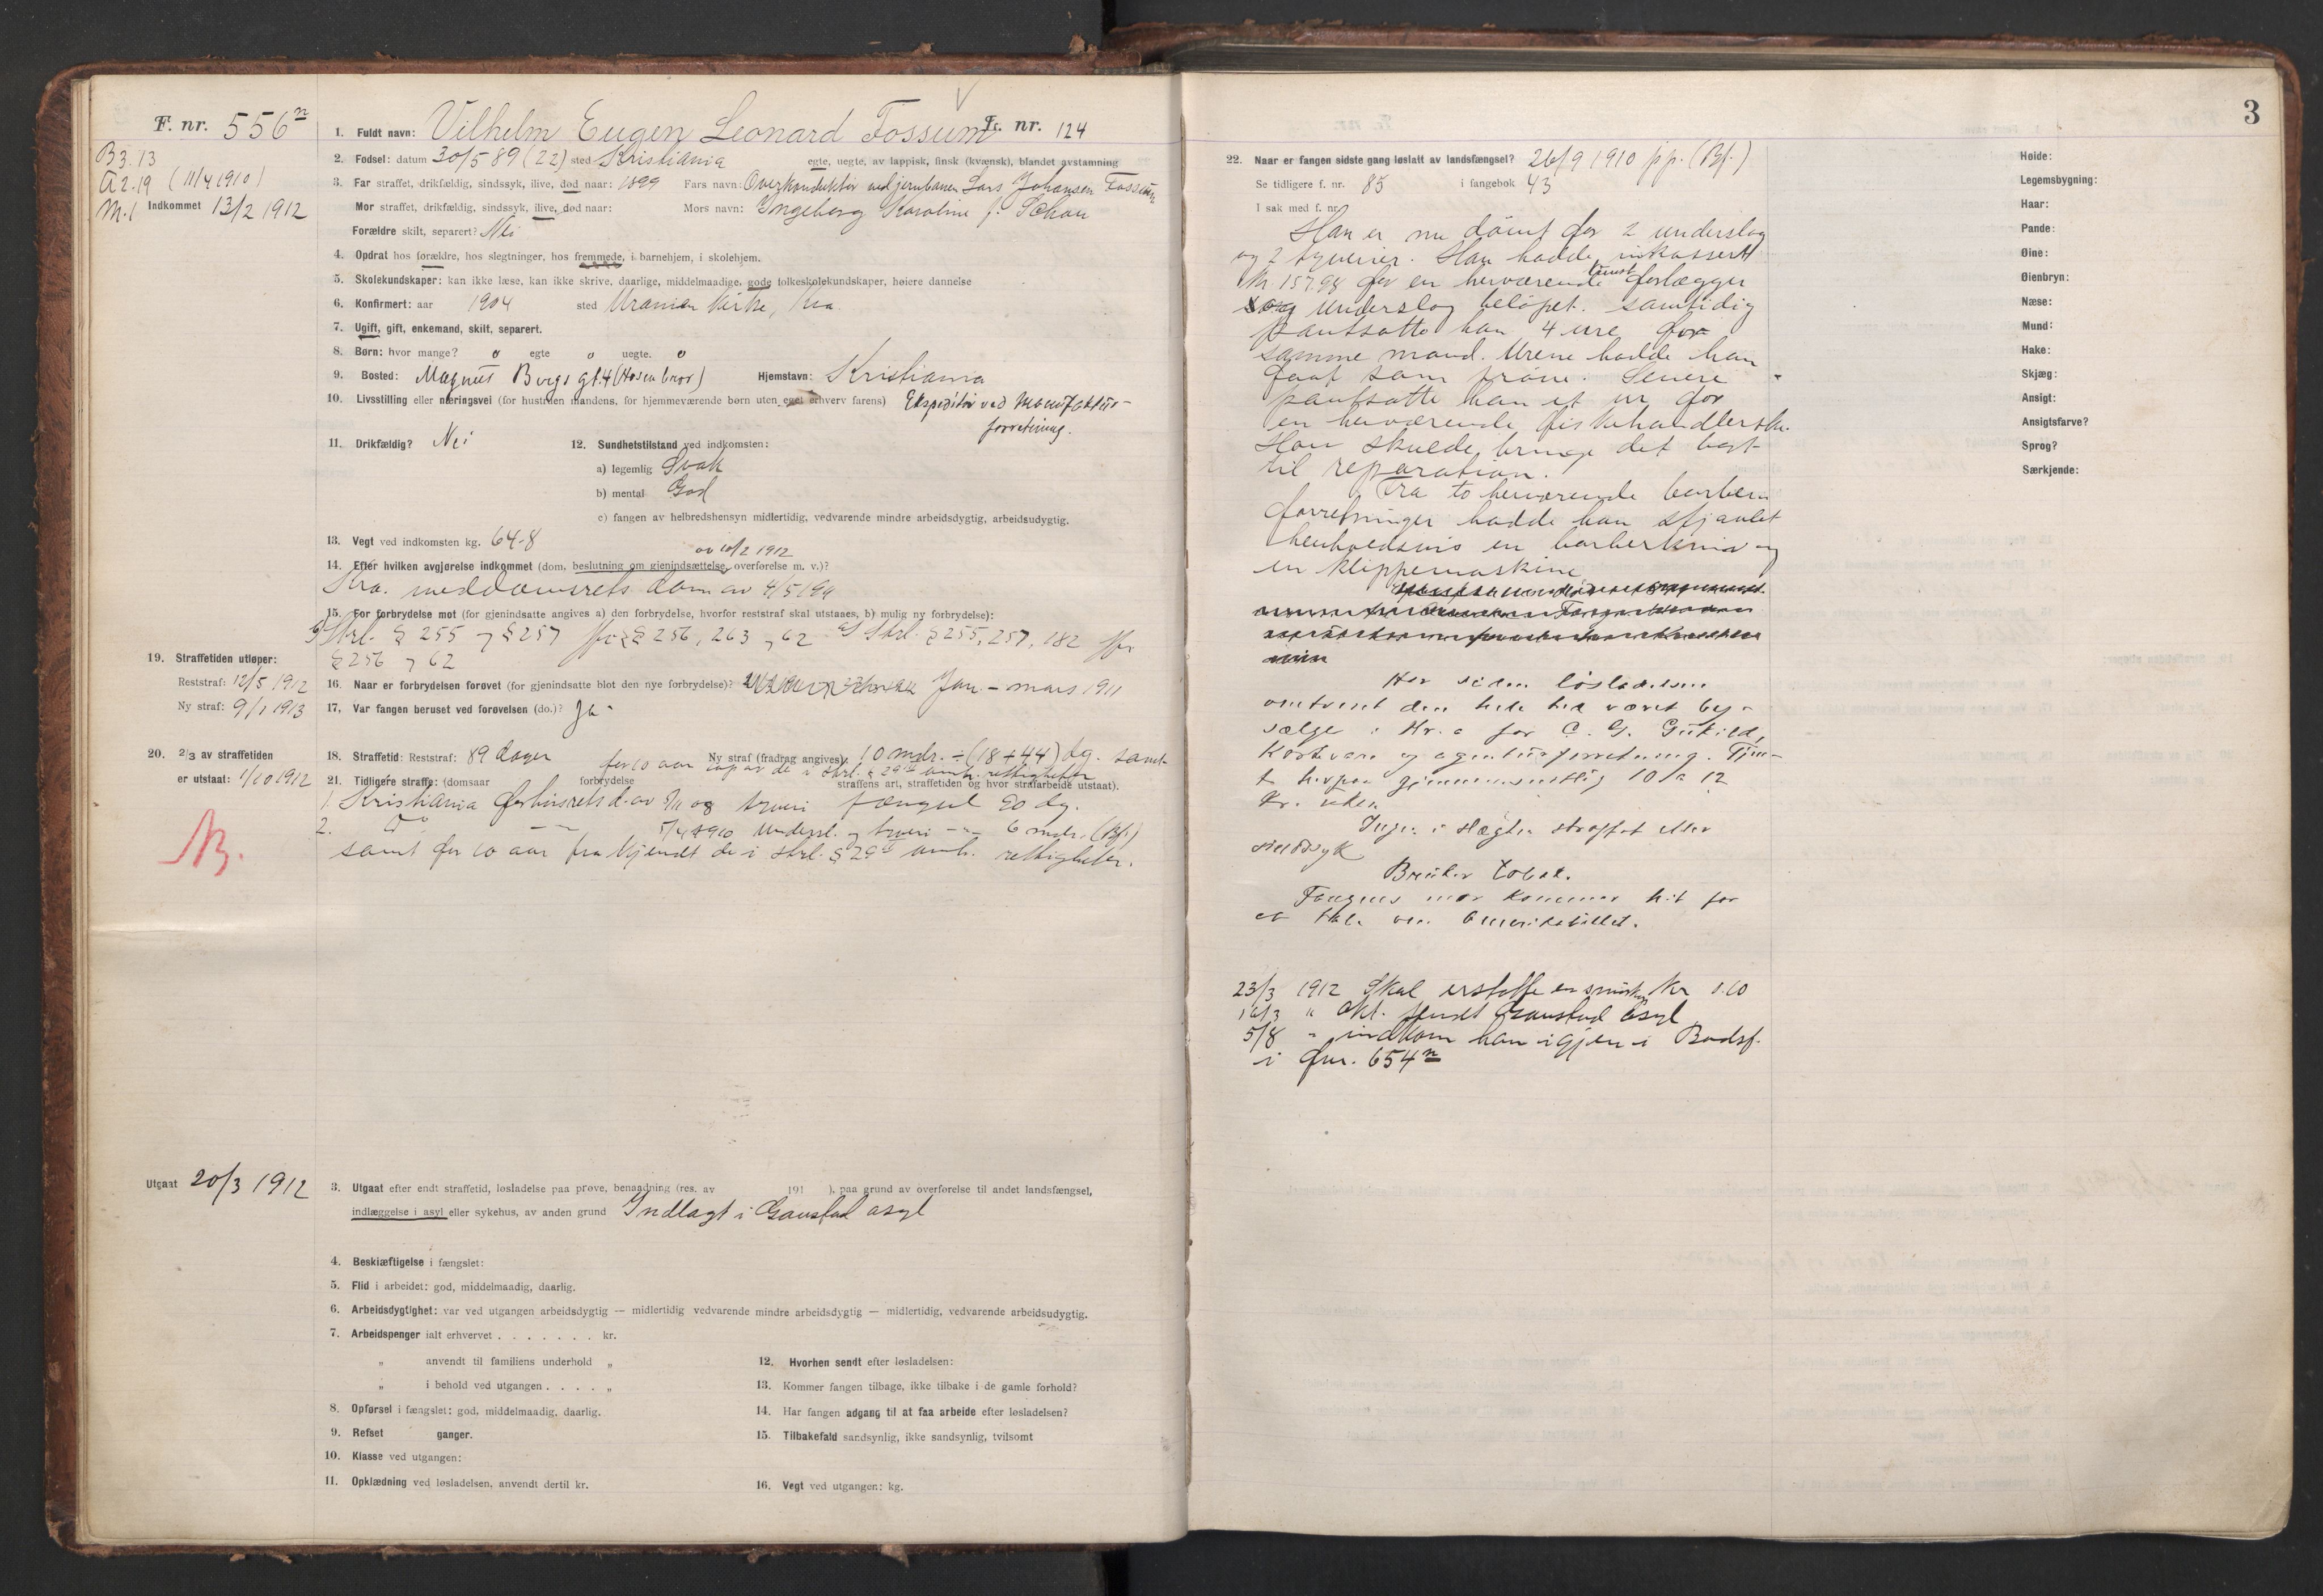 F. nr. 556n
B 3. 13
A 2. 19 (11/4 1910)
M. 1 Indkommet 13/2 1912
1. Fuldt navn: Vilhelm Eugen Leonard Fossum Fr. nr. 124
2. Fødsel: datum 30/5 89 (22) sted Kristiania egte, uegte, av lappisk, finsk (kvænsk), blandet avstamning
3. Far straffet, drikfældig, sindssyk, ilive, død naar: 1899 Fars navn: Overkonduktør ved jernbanen Lars Johansen Fossum
Mor straffet, drikfældig, sindssyk, ilive, død naar: Mors navn: Ingeborg Karoline f. Schou
Forældre skilt, separert? Nei
4. Opdrat hos forældre, hos slegtninger, hos fremmede, i barnehjem, i skolehjem.
5. Skolekundskaper: kan ikke læse, kan ikke skrive, daarlige, middelmaadige, gode folkeskolekundskaper, høiere dannelse
6. Konfirmert: aar 1904 sted Uranien kirke, Kra.
7. Ugift, gift, enkemand, skilt, separert.
8. Børn: hvor mange? 0 egte 0 uegte. 0
9. Bosted: Magnus Bergs gt. 4 (Hos en bror) Hjemstavn: Kristiania
10. Livsstilling eller næringsvei (for hustruen mandens, for hjemmeværende børn uten eget erhverv farens) Ekspeditør ved Manufaktur-
forretning.
11. Drikfældig? Nei 12. Sundhetstilstand ved indkomsten:
a) legemlig Svak
b) mental God
c) fangen av helbredshensyn midlertidig, vedvarende mindre arbeidsdygtig, arbeidsudygtig.
13. Vegt ved indkomsten kg. 64-8
av 10/2 1912
14. Efter hvilken avgjørelse indkommet (dom, beslutning om gjenindsættelse, overførelse m. v.)?
Kra. meddomsrets dom av 4/5 1911
15. For forbrydelse mot (for gjenindsatte angives a) den forbrydelse, hvorfor reststraf skal utstaaes, b) mulig ny forbrydelse):
b) Strl. § 255 og § 257 jfr §§ 256, 263 og 62 a) Strl. § 255, 257, 182 jfr
§ 256 og 62
19. Straffetiden utløper:
Reststraf: 12/5 1912
Ny straf: 9/1 1913
16. Naar er forbrydelsen forøvet (for gjenindsatte blot den nye forbrydelse)? Jan - mars 1911
17. Var fangen beruset ved forøvelsen (do.)? Ja -
20. 2/3 av straffetiden
er utstaat: 1/10 1912
18. Straffetid: Reststraf: 89 dager Ny straf (fradrag angives): 10 mdr. ÷ (18 + 44) dg. samt
for 10 aar tap av de i strl. § 29 omh. rettigheter
21. Tidligere straffe: (domsaar forbrydelse straffens art, straffetiden og hvor strafarbeide utstaat).
1. Kristiania forhørsrets d. av 3/11 08 tyveri fængsel 20 dg.
2. Do 5/4 1910 Undersl. og tyveri 6 mdr. (Bf.)
samt for 10 aar frakjendt de i strl. § 29 omh. rettigheter.
N.
Utgaat 20/3 1912
3. Utgaat efter endt straffetid, løsladelse paa prøve, benaadning (res. av 191 ), paa grund av overførelse til andet landsfængsel,
indlæggelse i asyl eller sykehus, av anden grund Indlagt i Gaustad asyl
4. Beskiæftigelse i fængslet:
5. Flid i arbeidet: god, middelmaadig, daarlig.
6. Arbeidsdygtighet: var ved utgangen arbeidsdygtig — midlertidig vedvarende mindre arbeidsdygtig — midlertidig, vedvarende arbeidsudygtig.
7. Arbeidspenger ialt erhvervet . . . . . . . kr.
„ anvendt til familiens underhold „
„ i behold ved utgangen . . . . „
8. Opførsel i fængslet: god, middelmaadig, daarlig.
9. Refset ganger.
10. Klasse ved utgangen:
11. Opklædning ved løsladelsen, anvendt dertil kr.
12. Hvorhen sendt efter løsladelsen:
13. Kommer fangen tilbage, ikke tilbake i de gamle forhold?
14. Har fangen adgang til at faa arbeide efter løsladelsen?
15. Tilbakefald sandsynlig, ikke sandsynlig, tvilsomt
16. Vegt ved utgangen: kg.
3
22. Naar er fangen sidste gang løslatt av landsfængsel? 26/9 1910 pp. (Bf.)
Se tidligere f. nr. 85 i fangebok 43
I sak med f. nr.
Han er nu dømt for 2 underslag
og 2 tyverier. Han hadde inkassert
Kr 157.98 for en herværende kunstforlægger
og underslog beløpet. Samtidig
pantsatte han 4 ure for
samme mand. Urene hadde han
faat som prøve. Senere
pantsatte han et ur for
en herværende fiskehandlerske.
Han skulde bringe det bort
til reparation.
Fra to herværende barber
forretninger hadde han stjaalet
henholdsvis en barberkniv og
en klippemaskine
Har siden løsladelsen
omtrent den hele tid været by-
sælge i Kr.a for C. G.
Kortvare og agenturforretning. Tjen-
t herpaa gjennemsnittlig 10 a 12
Kr. uken
Ingen i slægten straffet eller
sindssyk
Bruker tobak.
Fangens mor kommer hit for
at tale om Amerikabillet.
23/3 1912 Skal erstatte en Kr 0.10
16/3 " Akt. sendt Gaustad Asyl
5/8 " indkom han igjen i Bodsf.
i fnr. 654n
Høide:
Legemsbygning:
Haar:
Pande:
Øine:
Øienbryn:
Næse:
Mund:
Hake:
Skjæg:
Ansigt:
Ansigtsfarve?
Sprog?
Særkjende: